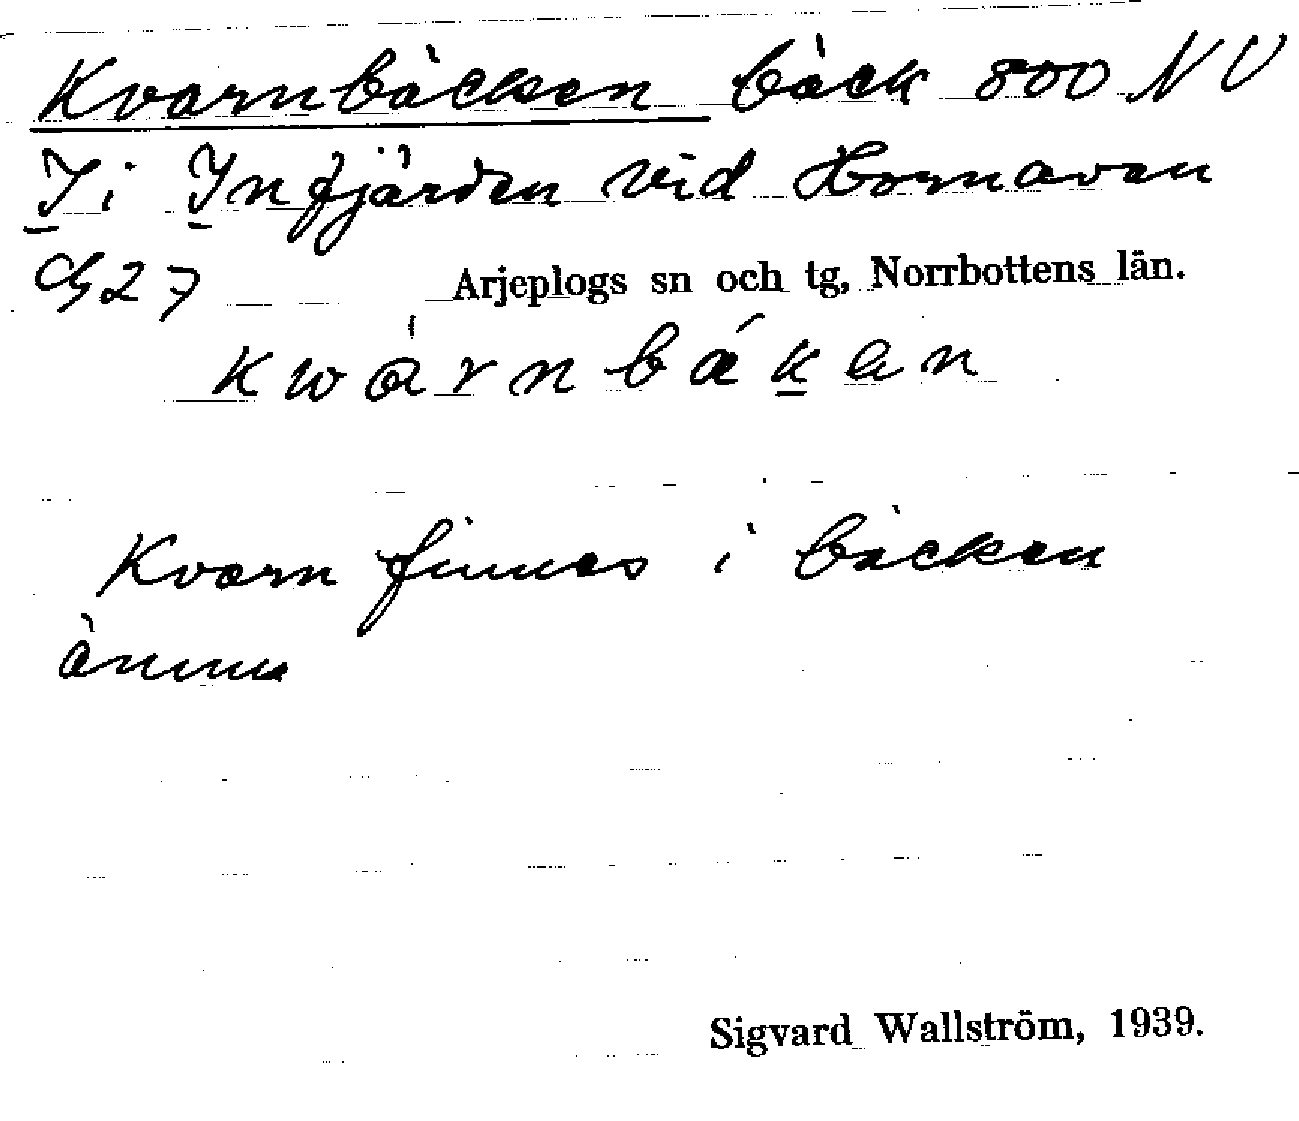 Kvarnbäcken bäck 800 NV
I i Infjärden vid Hornavan
G 27 Arjeplogs sn och tg, Norrbottens län.
kwàrnbǽkan
Kvarn finnes i bäcken
ännu
Sigvard Wallström, 1939.